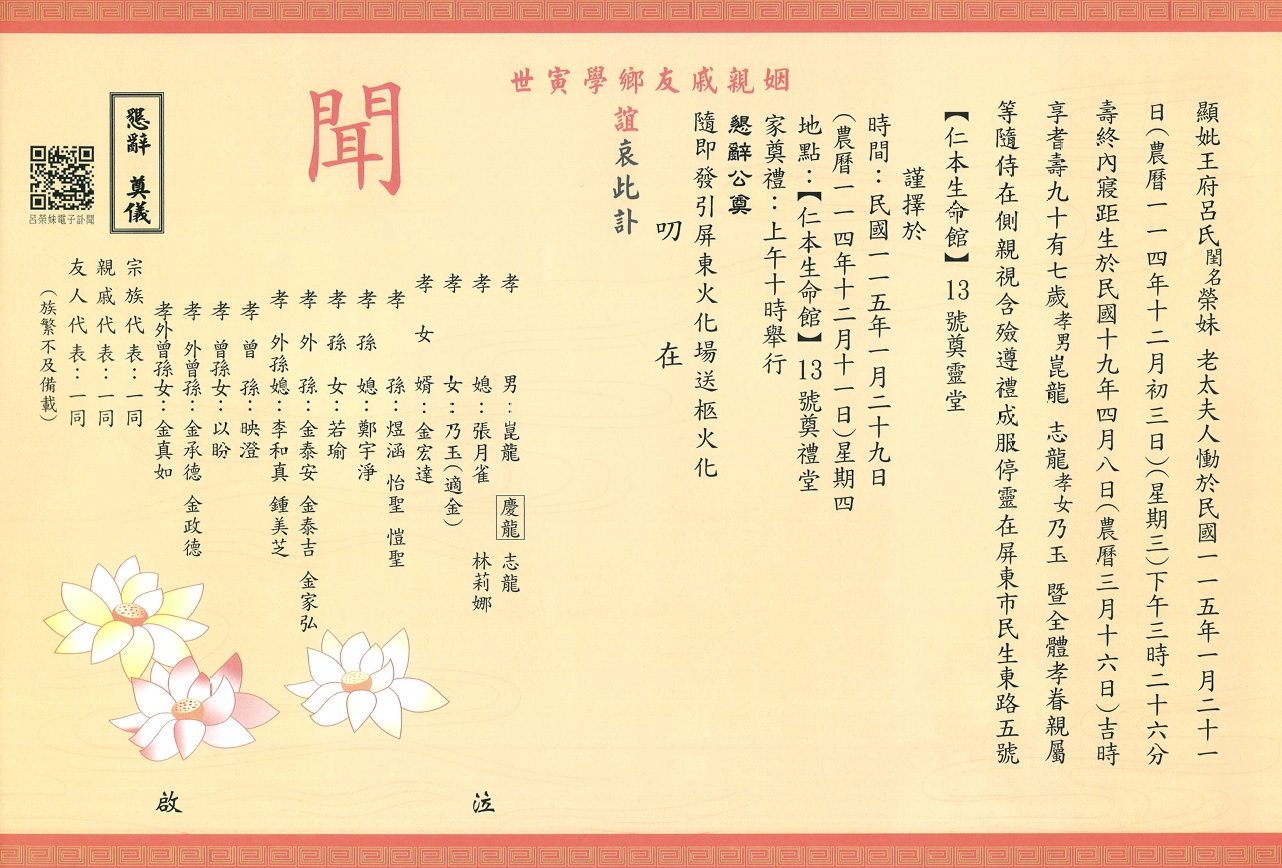 顯妣王府呂氏閨名榮妹 老太夫人慟於民國一一五年一月二十一
日(農曆一一四年十二月初三日)(星期三)下午三時二十六分
壽終內寢距生於民國十九年四月八日(農曆三月十六日)吉時
享耆壽九十有七歲孝男崑龍 志龍孝女乃玉 暨全體孝眷親屬
等隨侍在側親視含殮遵禮成服停靈在屏東市民生東路五號
【仁本生命館】13號奠靈堂
謹擇於
時間：民國一一五年一月二十九日
(農曆一一四年十二月十一日)星期四
地點：【仁本生命館】13號奠禮堂
家奠禮：上午十時舉行
懇辭公奠
隨即發引屏東火化場送柩火化
叨 在
姻親戚友鄉學寅世
誼哀此訃
聞
孝 男：崑龍 慶龍 志龍
孝 媳：張月雀 林莉娜
孝 女：乃玉(適金)
孝女 婿：金宏達
孝 孫：煜涵 怡聖 愷聖
孝孫 媳：鄭宇淨
孝孫 女：若瑜
孝外 孫：金泰安 金泰吉 金家弘
孝外孫 媳：李和真 鍾美芝
孝曾 孫：映澄
孝曾孫女：以盼
孝外曾孫：金承德 金政德
孝外曾孫女：金真如
泣
啟
宗族代表：一同
親戚代表：一同
友人代表：一同
(族繁不及備載)
懇辭 奠儀
呂榮妹電子訃聞